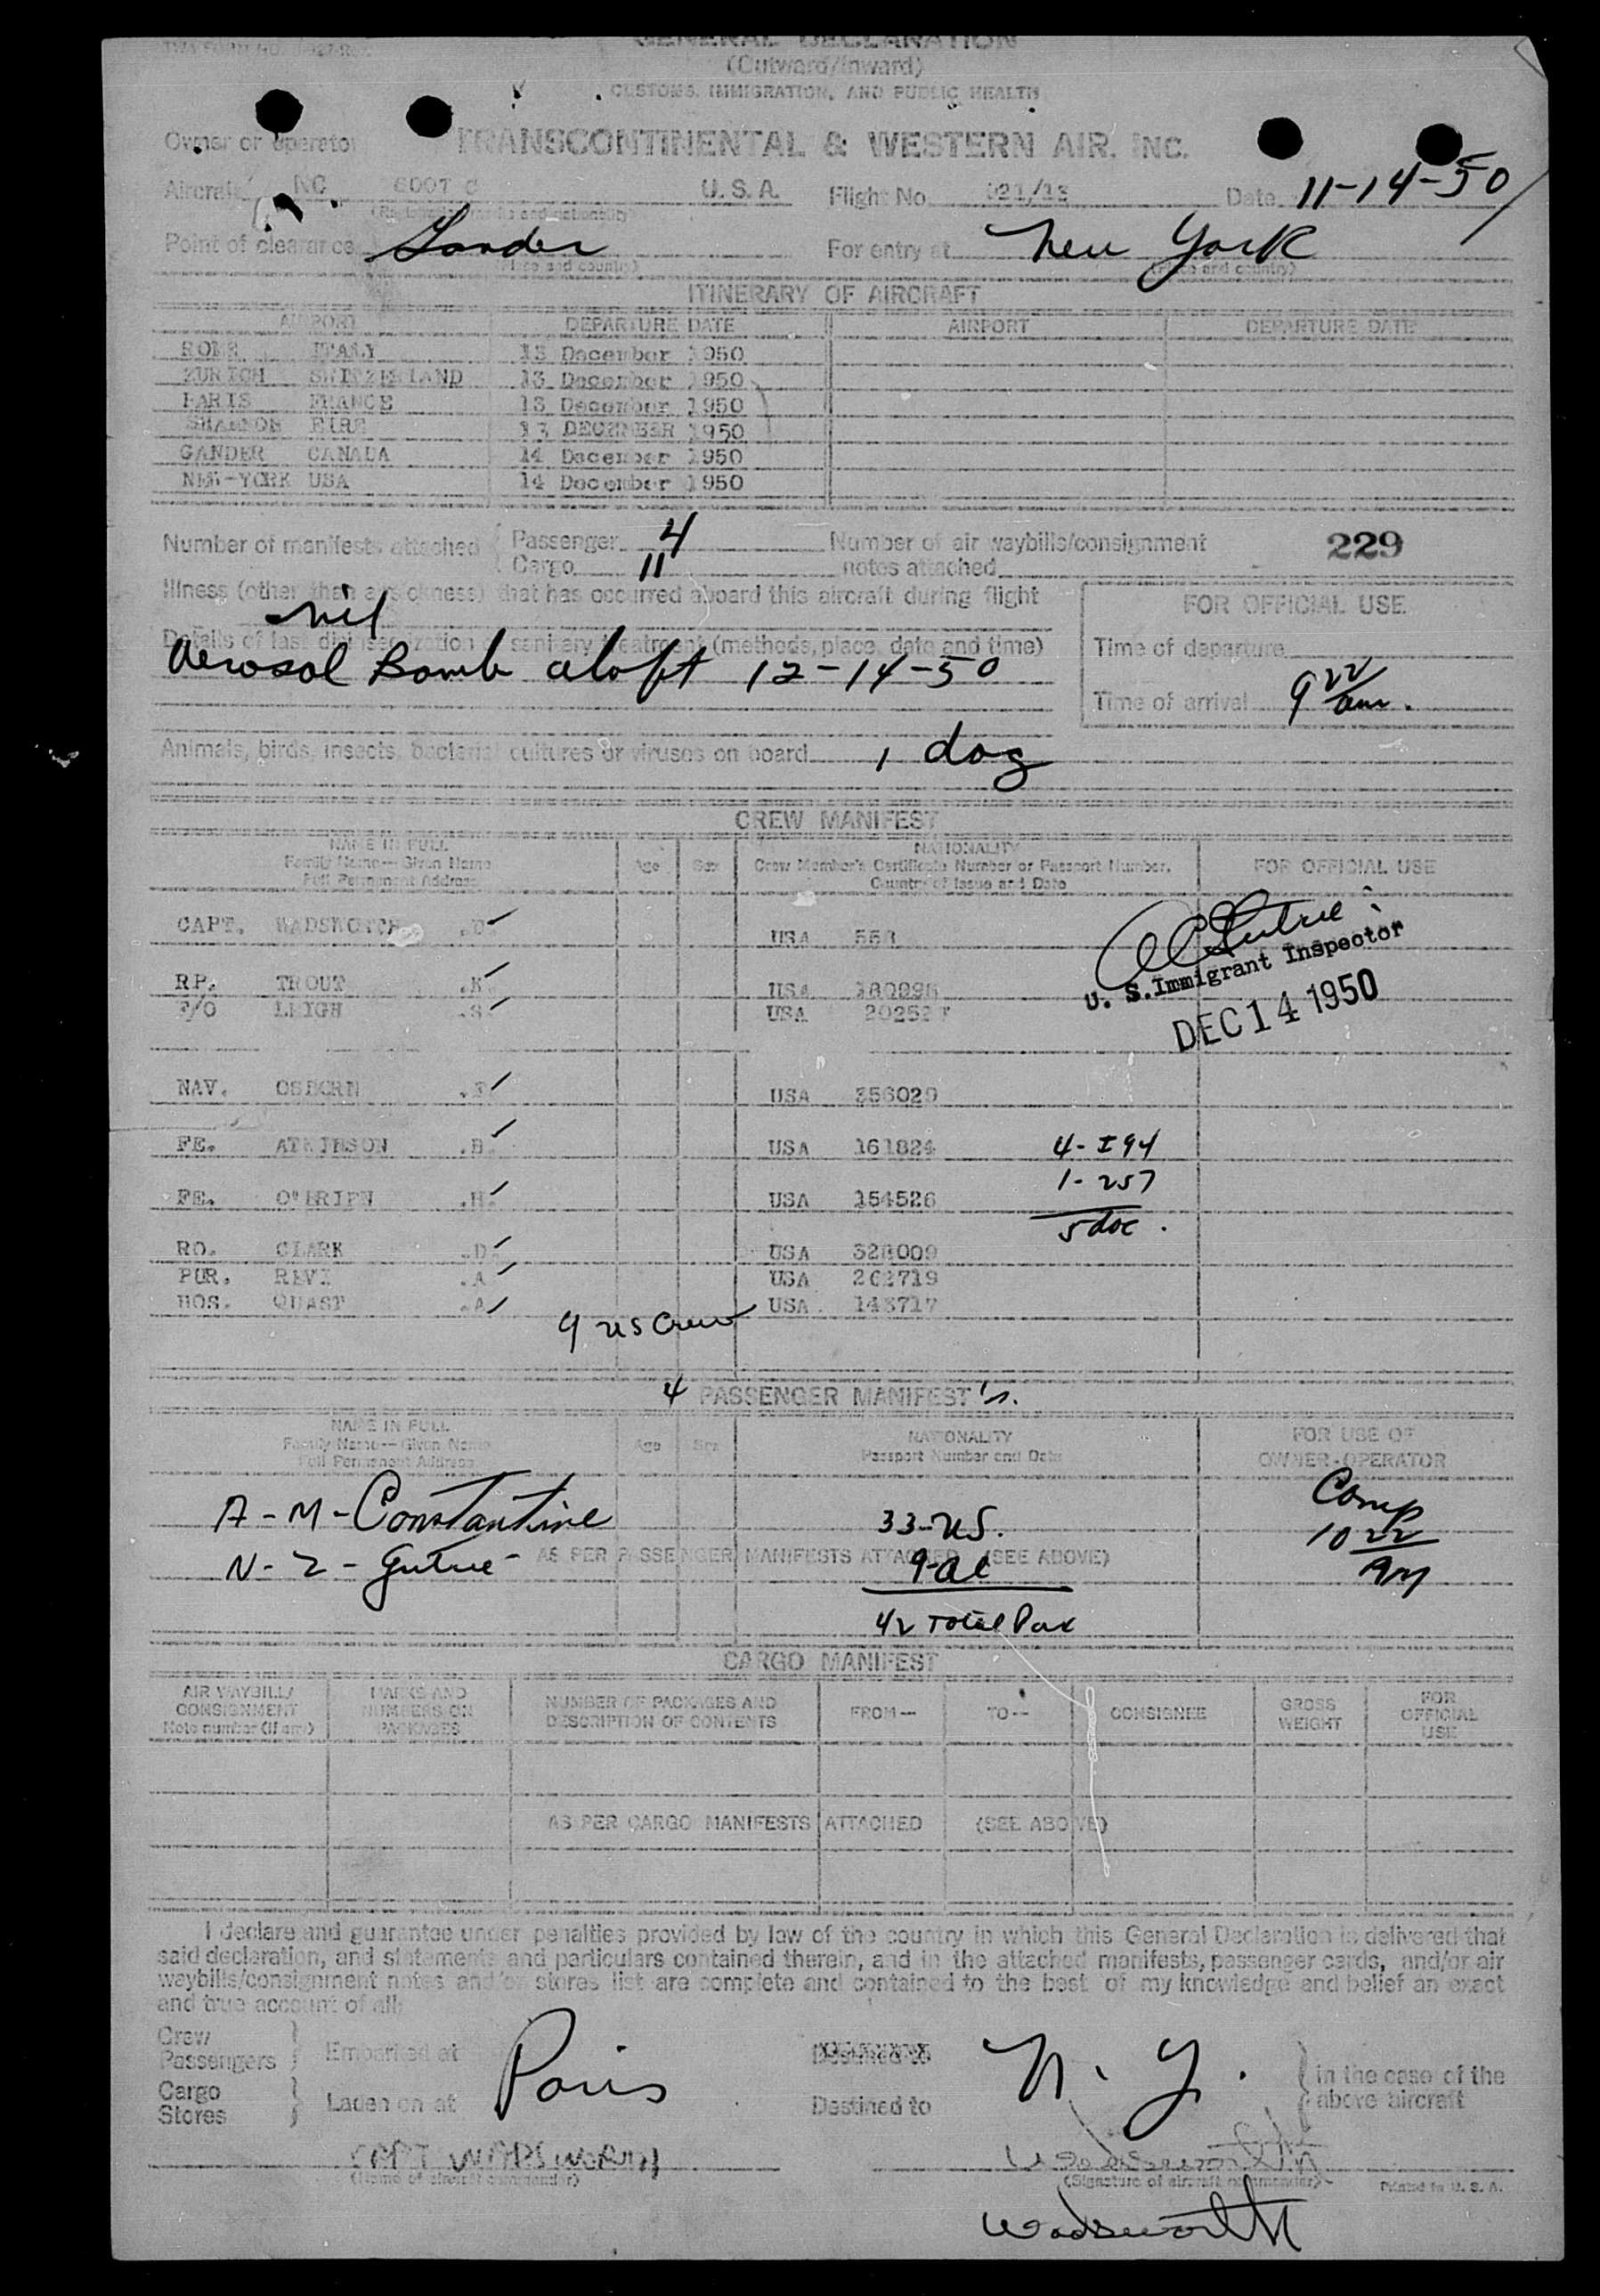 GENERAL DECLARATION
(Outward/Inward)
CUSTOMS, IMMIGRATION, AND PUBLIC HEALTH
Owner or operator TRANSCONTINENTAL & WESTERN AIR, INC.
Aircraft NC 6007 C U. S. A. Flight No. 921/13 Date 11-14-50
(Registration marks and nationality)
Point of clearance Gander For entry at New York
(Place and country) (Place and country)
ITINERARY OF AIRCRAFT
AIRPORT DEPARTURE DATE AIRPORT DEPARTURE DATE
ROME ITALY 13 December 1950
ZURICH SWITZERLAND 13 December 1950
PARIS FRANCE 13 December 1950
SHANNON EIRE 13 DECEMBER 1950
GANDER CANADA 14 December 1950
NEW-YORK USA 14 December 1950
Number of manifests attached Passenger 4 Number of air waybills/consignment 229
Cargo 11 notes attached
Illness (other than airsickness) that has occurred aboard this aircraft during flight
nil
FOR OFFICIAL USE
Details of last disinsectization or sanitary treatment (methods, place, date and time)
Time of departure
Aerosol Bomb aloft 12-14-50
Time of arrival 9 22 am.
Animals, birds, insects, bacterial cultures or viruses on board 1 dog
CREW MANIFEST
NAME IN FULL
Family Name—Given Name
Full Permanent Address
Age Sex
NATIONALITY
Crew Member's Certificate Number or Passport Number,
Country of Issue and Date
FOR OFFICIAL USE
CAPT. WADSWORTH .D USA
U. S. Immigrant Inspector
DEC 14 1950
RP. TROUT .K USA
F/O LEIGH .S USA
NAV. OSBORN USA 356029
FE. ATKINSON .B. USA 161824
4- I94
1- 257
5 doc.
FE. O'BRIEN .H. USA 154526
RO. CLARK .D USA 328009
PUR. REVI .A USA 262719
HOS. QUAST .A USA. 143717
9 US Crew
4 PASSENGER MANIFEST's.
NAME IN FULL
Family Name—Given Name
Full Permanent Address
Age Sex
NATIONALITY
Passport Number and Date
FOR USE OF
OWNER-OPERATOR
A-M- Constantine 33-US. Comp
N-Z- Gutrie AS PER PASSENGER MANIFESTS ATTACHED (SEE ABOVE)
9-al
10 22 AM
42 Total Pax
CARGO MANIFEST
AIR WAYBILL/
CONSIGNMENT
Note number (if any)
MARKS AND
NUMBERS ON
PACKAGES
NUMBER OF PACKAGES AND
DESCRIPTION OF CONTENTS
FROM— TO— CONSIGNEE
GROSS
WEIGHT
FOR
OFFICIAL
USE
AS PER CARGO MANIFESTS ATTACHED (SEE ABOVE)
I declare and guarantee under penalties provided by law of the country in which this General Declaration is delivered that
said declaration, and statements and particulars contained therein, and in the attached manifests, passenger cards, and/or air
waybills/consignment notes and/or stores list are complete and contained to the best of my knowledge and belief an exact
and true account of all:
Crew
Passengers Embarked at Paris Destined to N. Y. in the case of the
above aircraft
Cargo
Stores Laden on at Destined to
CAPT WADSWORTH Wadsworth
(Name of aircraft commander) (Signature of aircraft commander) Printed in U. S. A.
Wadsworth